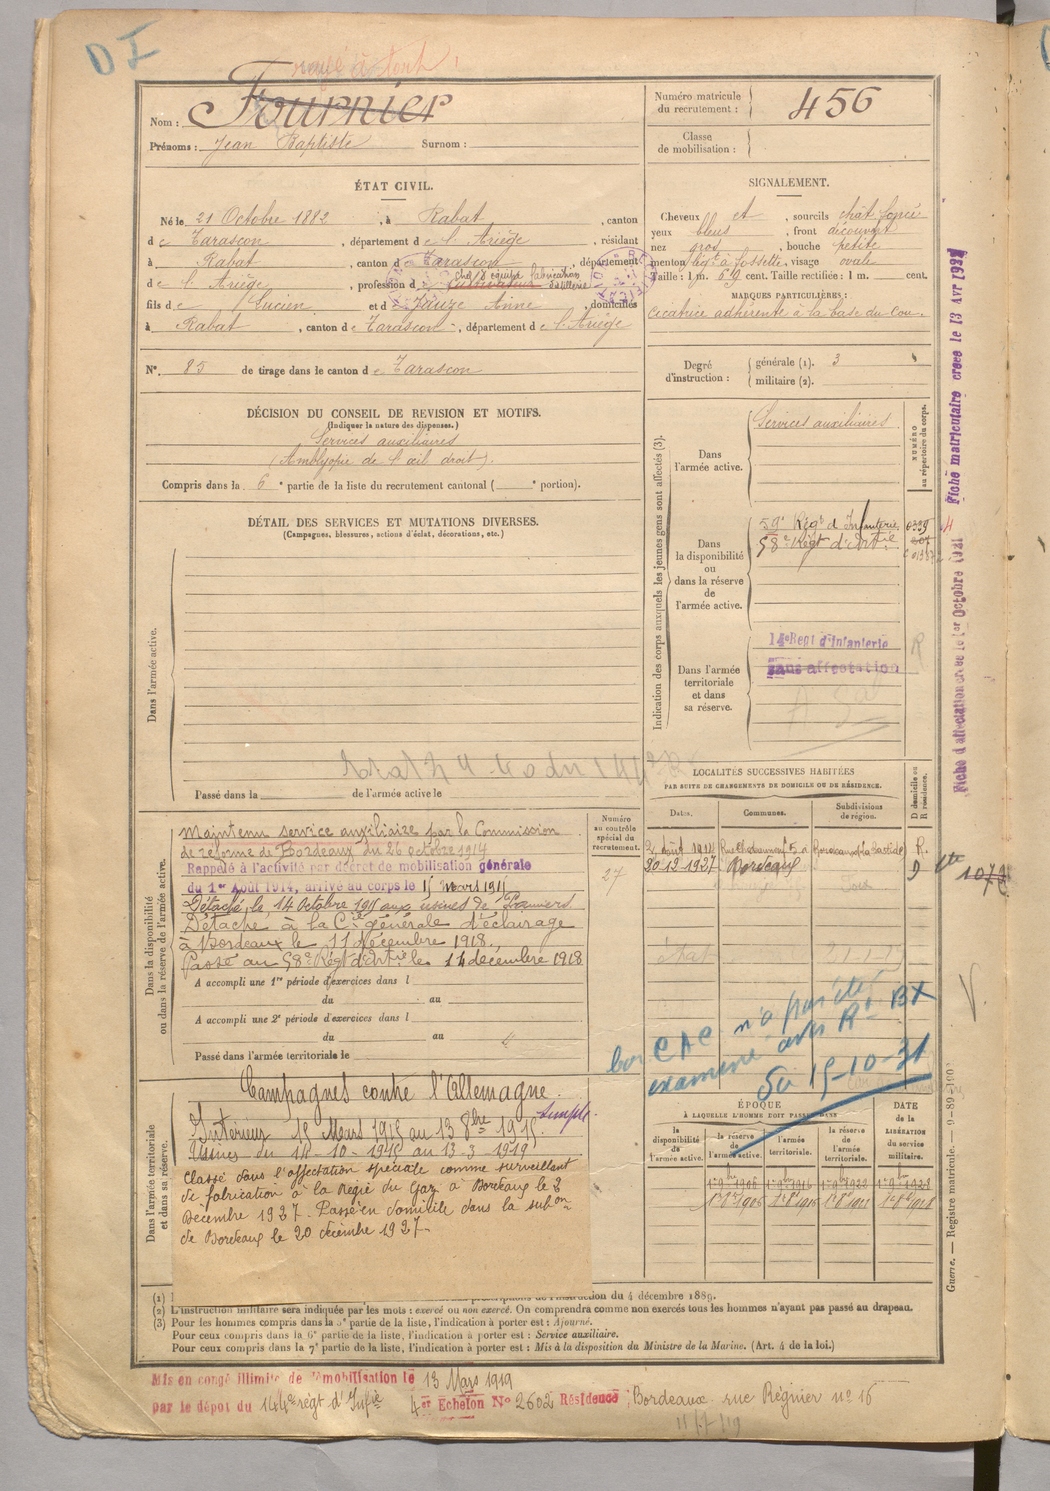 D I
rayé à tort
Nom : Fournier
Prénoms : Jean Baptiste Surnom :
Numéro matricule du recrutement : 456
Classe de mobilisation :
ÉTAT CIVIL.
Né le 21 Octobre 1882, à Rabat, canton
de Tarascon, département de l'Ariège, résidant
à Rabat, canton de Tarascon, département
chef d'équipe fabrication
de l'Ariège, profession de distillerie
fils de Lucien et de Jauze Anne, domiciliés
à Rabat, canton de Tarascon, département de l'Ariège
N° 85 de tirage dans le canton de Tarascon
SIGNALEMENT.
Cheveux et, sourcils chât. foncé
yeux bleus, front découvert
nez gros, bouche petite
menton à fossette, visage ovale
Taille : 1 m. 59 cent. Taille rectifiée : 1 m. cent.
MARQUES PARTICULIÈRES :
Cicatrice adhérente à la base du cou.
Degré d'instruction : générale (1). 3
militaire (2).
DÉCISION DU CONSEIL DE REVISION ET MOTIFS.
(Indiquer la nature des dispenses.)
Services auxiliaires
(Amblyopie de l'œil droit).
Compris dans la 6e partie de la liste du recrutement cantonal ( e portion).
DÉTAIL DES SERVICES ET MUTATIONS DIVERSES.
(Campagnes, blessures, actions d'éclat, décorations, etc.)
Dans l'armée active.
Passé dans la de l'armée active le
Indication des corps auxquels les jeunes gens sont affectés (3).
NUMÉRO au répertoire du corps.
Dans l'armée active.
Services auxiliaires.
Dans la disponibilité ou dans la réserve de l'armée active.
59e Régt d'Infanterie
58e Régt d'Artie
Dans l'armée territoriale et dans sa réserve.
14e Regt d'Infanterie
Sans affectation
R
Fiche d'affectation créée le 1er Octobre 1921 Fiche matriculaire créée le 13 Avr 193
LOCALITÉS SUCCESSIVES HABITÉES
PAR SUITE DE CHANGEMENTS DE DOMICILE OU DE RÉSIDENCE.
Dates. Communes. Subdivisions de région. D domicile ou R résidence.
R.
20-12-1927 Bordeaux D
Dans la disponibilité ou dans la réserve de l'armée active.
Numéro au contrôle spécial du recrutement.
27
Maintenu service auxiliaire par la Commission
de réforme de Bordeaux du 26 octobre 1914
Rappelé à l'activité par décret de mobilisation générale
du 1er Août 1914, arrivé au corps le 15 mars 1915
Détaché le 14 Octobre 1915 aux usines de
Détaché à la Cie générale d'éclairage
à Bordeaux le 11 décembre 1918.
Passé au 58e Régt d'Artie le 14 décembre 1918
A accompli une 1re période d'exercices dans l
du au
A accompli une 2e période d'exercices dans l
du au
Passé dans l'armée territoriale le
CAC n'a pas été
examiné avec Rt BX
15-10-31
Dans l'armée territoriale et dans sa réserve.
Campagnes contre l'Allemagne
Intérieur 15 Mars 1915 au 13 8bre 1915 simple
Usines du 14-10-1915 au 13-3-1919
Classé dans l'affectation spéciale comme surveillant
de fabrication à la Régie du Gaz à Bordeaux le 8
Décembre 1927. Passé en domicile dans la subon
de Bordeaux le 20 décembre 1927.
ÉPOQUE
À LAQUELLE L'HOMME DOIT PASSER DANS
la disponibilité de l'armée active. la réserve de l'armée active. l'armée territoriale. la réserve de l'armée territoriale. DATE de la LIBÉRATION du service militaire.
Guerre. — Registre matricule. — 9-89-190
(1)
du 4 décembre 1889.
(2) L'instruction militaire sera indiquée par les mots : exercé ou non exercé. On comprendra comme non exercés tous les hommes n'ayant pas passé au drapeau.
(3) Pour les hommes compris dans la 5e partie de la liste, l'indication à porter est : Ajourné.
Pour ceux compris dans la 6e partie de la liste, l'indication à porter est : Service auxiliaire.
Pour ceux compris dans la 7e partie de la liste, l'indication à porter est : Mis à la disposition du Ministre de la Marine. (Art. 4 de la loi.)
Mis en congé illimité de démobilisation le 13 Mars 1919
par le dépot du 144e régt d'Infie 4er Echelon N° 2602 Résidence Bordeaux rue Régnier no 16
11/7/19